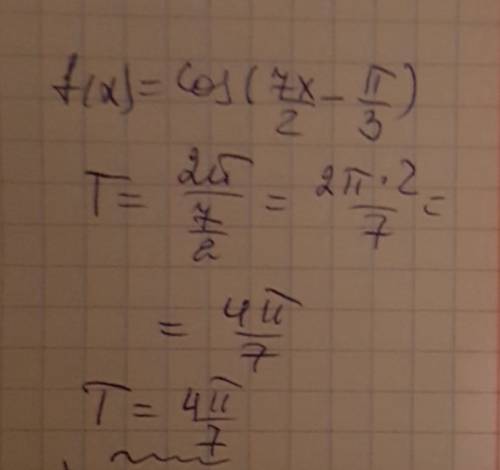 f(x) = cos(7x/2 - π/3)
T = 2π/(7/2) = 2π·2/7 =
= 4π/7
T = 4π/7